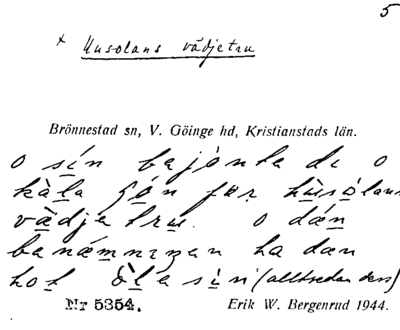 5
× Husolans vädjetru
Brönnestad sn, V. Göinge hd, Kristianstads län.
o sín bejönte de o
kàla gón får hùsòlans
vädjetrú. o dán
benämningen ha dan
hot òlasin (alltsedan dess)
Nr 5354. Erik W. Bergenrud 1944.